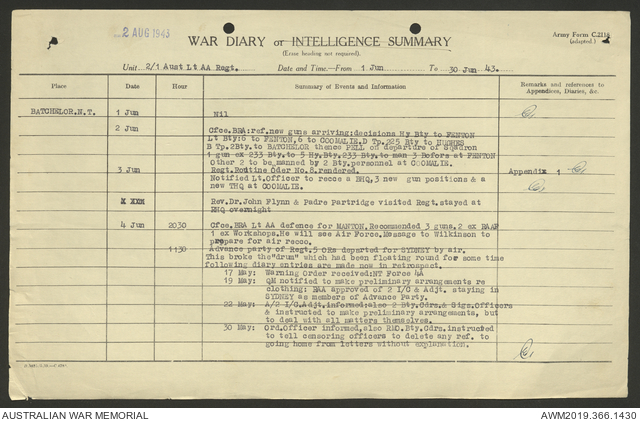 2 AUG 1943
Army Form C.2118
(adapted.)
WAR DIARY or INTELLIGENCE SUMMARY
(Erase heading not required).
Unit 2/1 Aust Lt AA Regt. Date and Time.—From 1 Jun To 30 Jun 43.
Place Date Hour Summary of Events and Information Remarks and references to Appendices, Diaries, &c.
BATCHELOR.N.T. 1 Jun Nil
2 Jun Cfce.BRA:ref.new guns arriving:decisions Hy Bty to FENTON
Lt Bty:6 to FENTON,6 to COOMALIE.D Tp.225 Bty to HUGHES
B Tp.2Bty.to BATCHELOR thence PELL on departure of Squadron
1 gun ex 233 Bty.to 5 Hy.Bty.233 Bty.to man 3 Bofors at FENTON
Other 2 to be manned by 2 Bty.personnel at COOMALIE.
3 Jun Regt.Routine Oder No.8.rendered. Appendix 1
Notified Lt.officer to recce a BHQ,3 new gun positions & a
new THQ at COOMALIE.
X XXX Rev.Dr.John Flynn & Padre Partridge visited Regt.stayed at
RHQ overnight
4 Jun 2030 Cfce.BRA Lt AA defence for MANTON.Recommended 3 guns.2 ex RAAF
1 ex Workshops.He will see Air Force.Message to Wilkinson to
prepare for air recco.
1130 Advance party of Regt.5 ORs departed for SYDNEY by air.
This broke the"drum" which had been floating round for some time
following diary entries are made now in retrospect.
17 May: Warning Order received:NT Force 4A
19 May: QM notified to make preliminary arrangements re
clothing: BRA approved of 2 I/C & Adjt. staying in
SYDNEY as members of Advance Party.
22 May: A/2 I/C.Adjt.informed:also 2 Bty.Cdrs.& Sigs.Officers
& instructed to make preliminary arrangements, but
to deal with all matters themselves.
30 May: Ord.Officer informed,also RMO.Bty.Cdrs.instructed
to tell censoring officers to delete any ref. to
going home from letters without explanation.
AUSTRALIAN WAR MEMORIAL AWM2019.366.1430